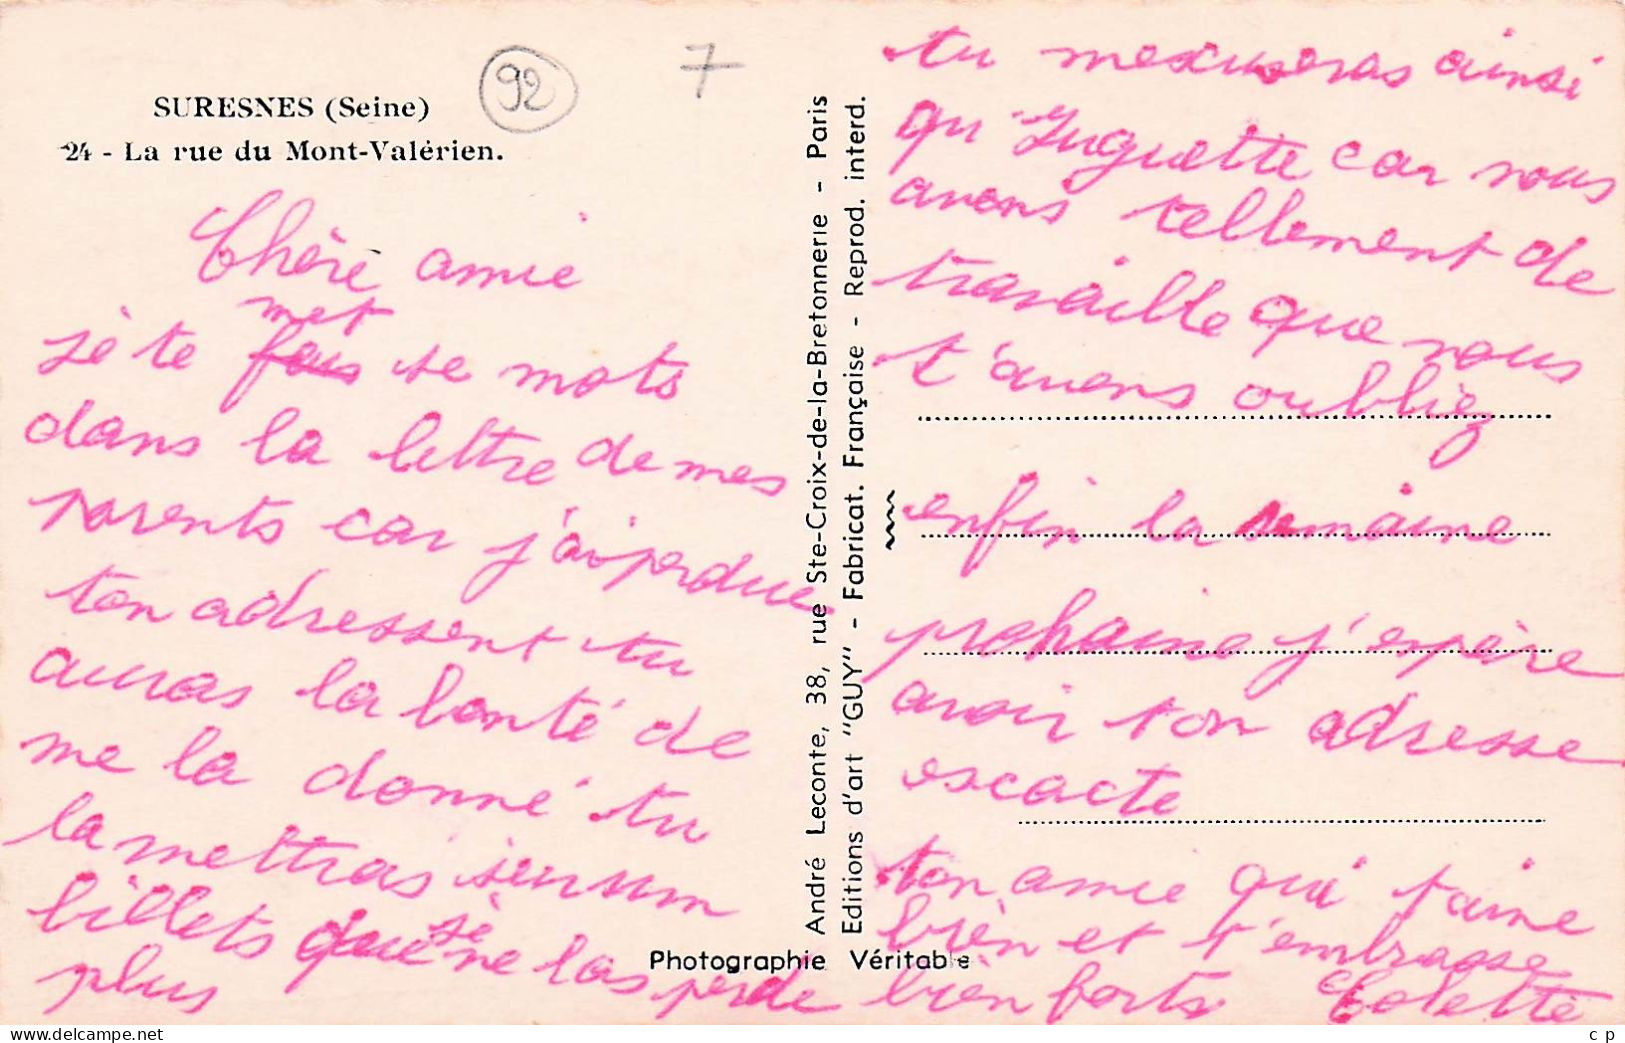 SURESNES (Seine)
24 - La rue du Mont-Valérien.
92
7
Chère amie
met
jè te fais se mots
dans la lettre de mes
parents car j'ai perdue
ton adressent tu
auras la bonté de
me la donné tu
la mettras sur um
billets que jè ne las perde
plus
André Leconte, 38, rue Ste-Croix-de-la-Bretonnerie - Paris
Editions d'art "GUY" - Fabricat. Française - Reprod. interd.
Photographie Véritable
tu mexuseras ainsi
qu'Huguette car nous
avons tellement de
travaille que nous
t'avens oubliez
enfin la semaine
prohaine j'espère
avoir ton adresse
escacte
ton amie qui t'aime
bièn et t'embrasse
bièn forts Colette
c p